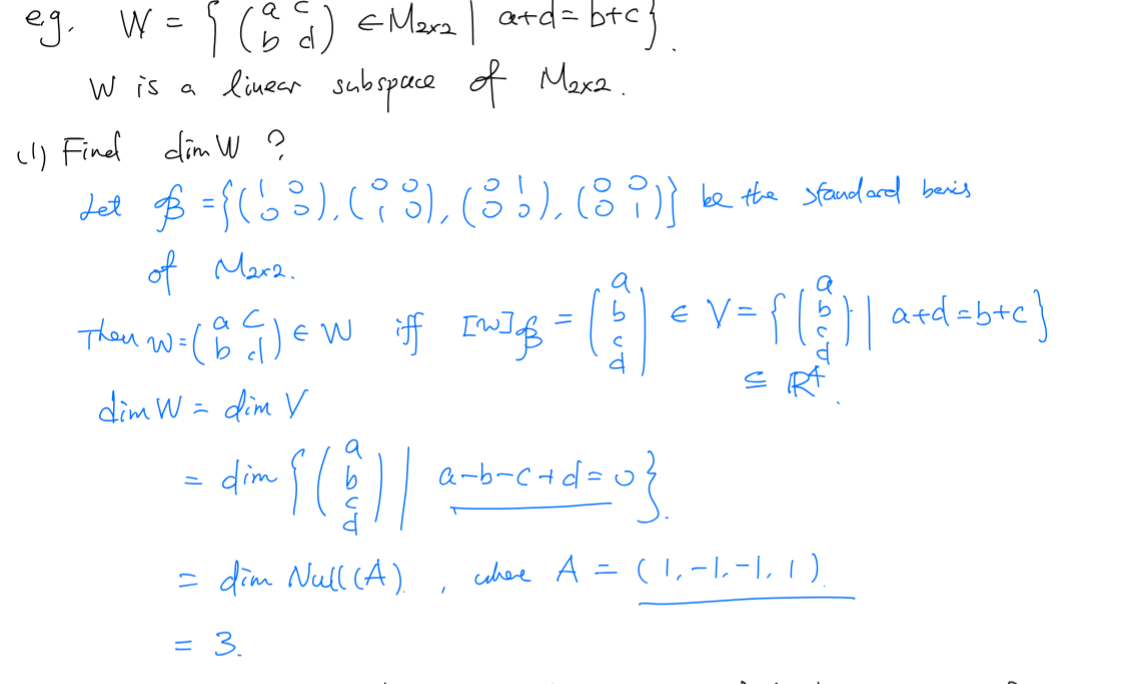 e.g. W = { ( a c ; b d ) ∈ M2x2 | a+d = b+c }.
W is a linear subspace of M2x2.
(1) Find dim W ?
Let β = { ( 1 0 ; 0 0 ), ( 0 0 ; 1 0 ), ( 0 1 ; 0 0 ), ( 0 0 ; 0 1 ) } be the standard basis
of M2x2.
Then w = ( a c ; b d ) ∈ W iff [w]β = ( a ; b ; c ; d ) ∈ V = { ( a ; b ; c ; d ) | a+d = b+c }
⊆ R⁴.
dim W = dim V
= dim { ( a ; b ; c ; d ) | a-b-c+d = 0 }.
= dim Null(A). , where A = ( 1, -1, -1, 1 ).
= 3.